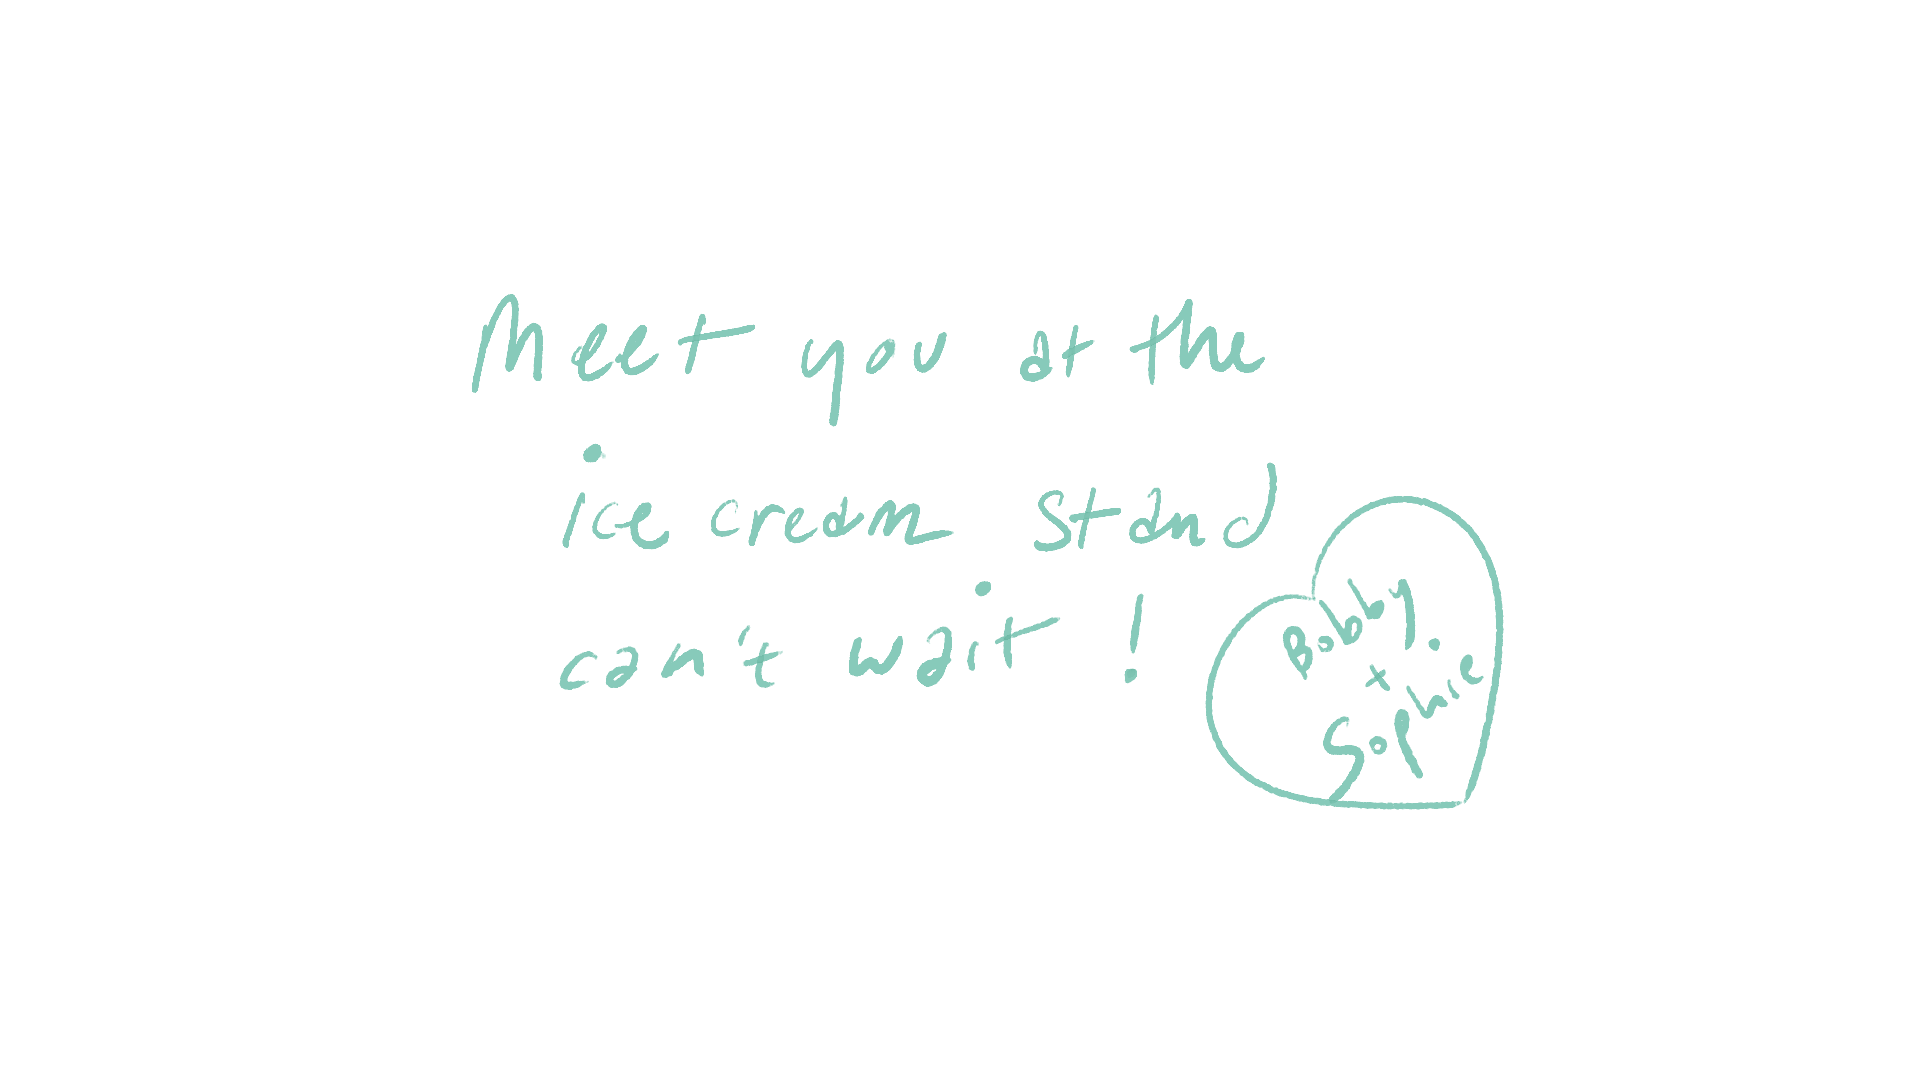 Meet you at the
ice cream stand
can't wait!
Bobby
+
Sophie